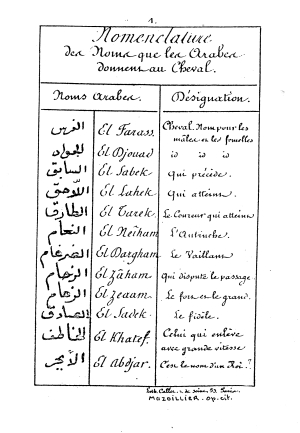 1.
Nomenclature
des Noms que les Arabes
donnent au Cheval.
Noms Arabes. Désignation.
الفرس El Farass. Cheval. Nom pour les
mâles et les femelles
الجواد El Djouad id id id
السابق El Sabek Qui précède.
اللاحق El Lahek Qui atteint.
الطارق El Tarek. Le Coureur qui atteint
النعام El Neïham L'Autruche.
الضرغام El Dargham Le Vaillant
الزحام El Zâham Qui dispute le passage
الزعام El Zeaam Le fort et le grand.
الصادق El Sadek Le fidèle.
الخاطف El Khatef. Celui qui enlève
avec grande vitesse
الأبجر El Abdjar. C'est le nom d'un Roi.
MAZOILLIER. Op. cit.